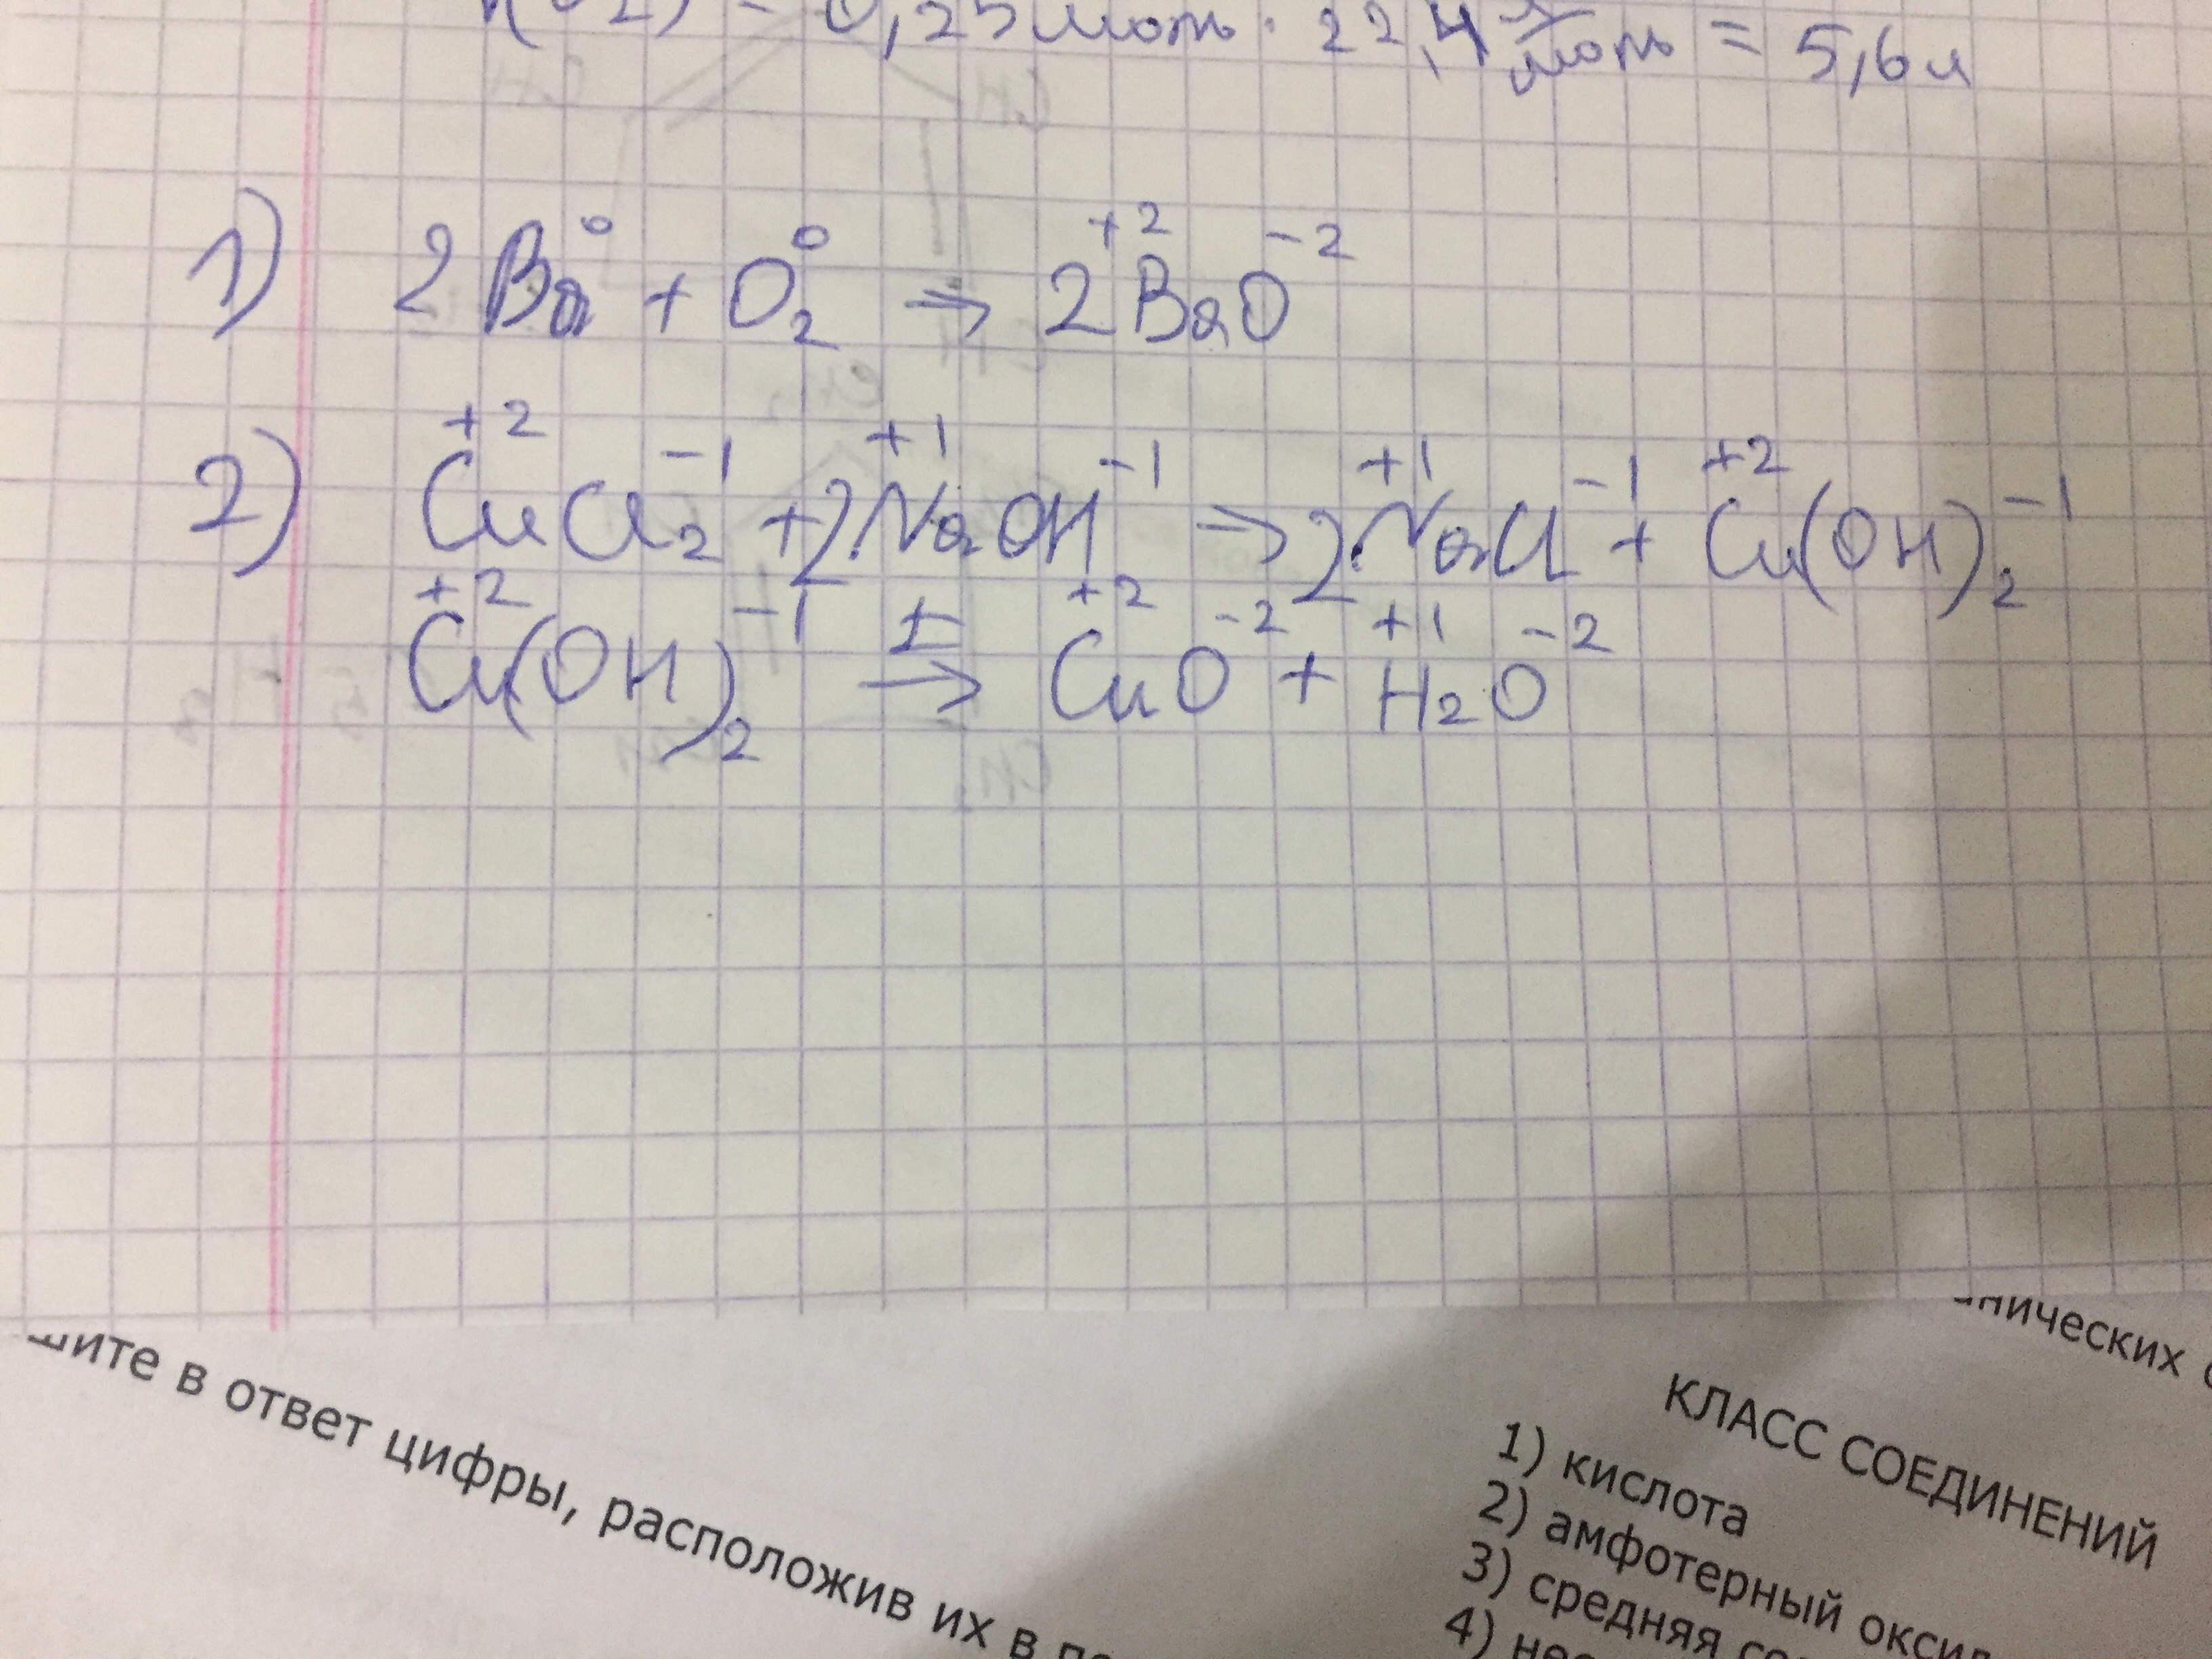 = 0,25моль · 22,4 л/моль = 5,6л
1) 2Ba⁰ + O₂⁰ → 2Ba⁺²O⁻²
2) Cu⁺²Cl₂⁻¹ + 2Na⁺¹OH⁻¹ → 2Na⁺¹Cl⁻¹ + Cu⁺²(OH)₂⁻¹
Cu⁺²(OH)₂⁻¹ →ᵗ Cu⁺²O⁻² + H₂⁺¹O⁻²
шите в ответ цифры, расположив их в
КЛАСС СОЕДИНЕНИЙ
1) кислота
2) амфотерный оксид
3) средняя со
4) нес